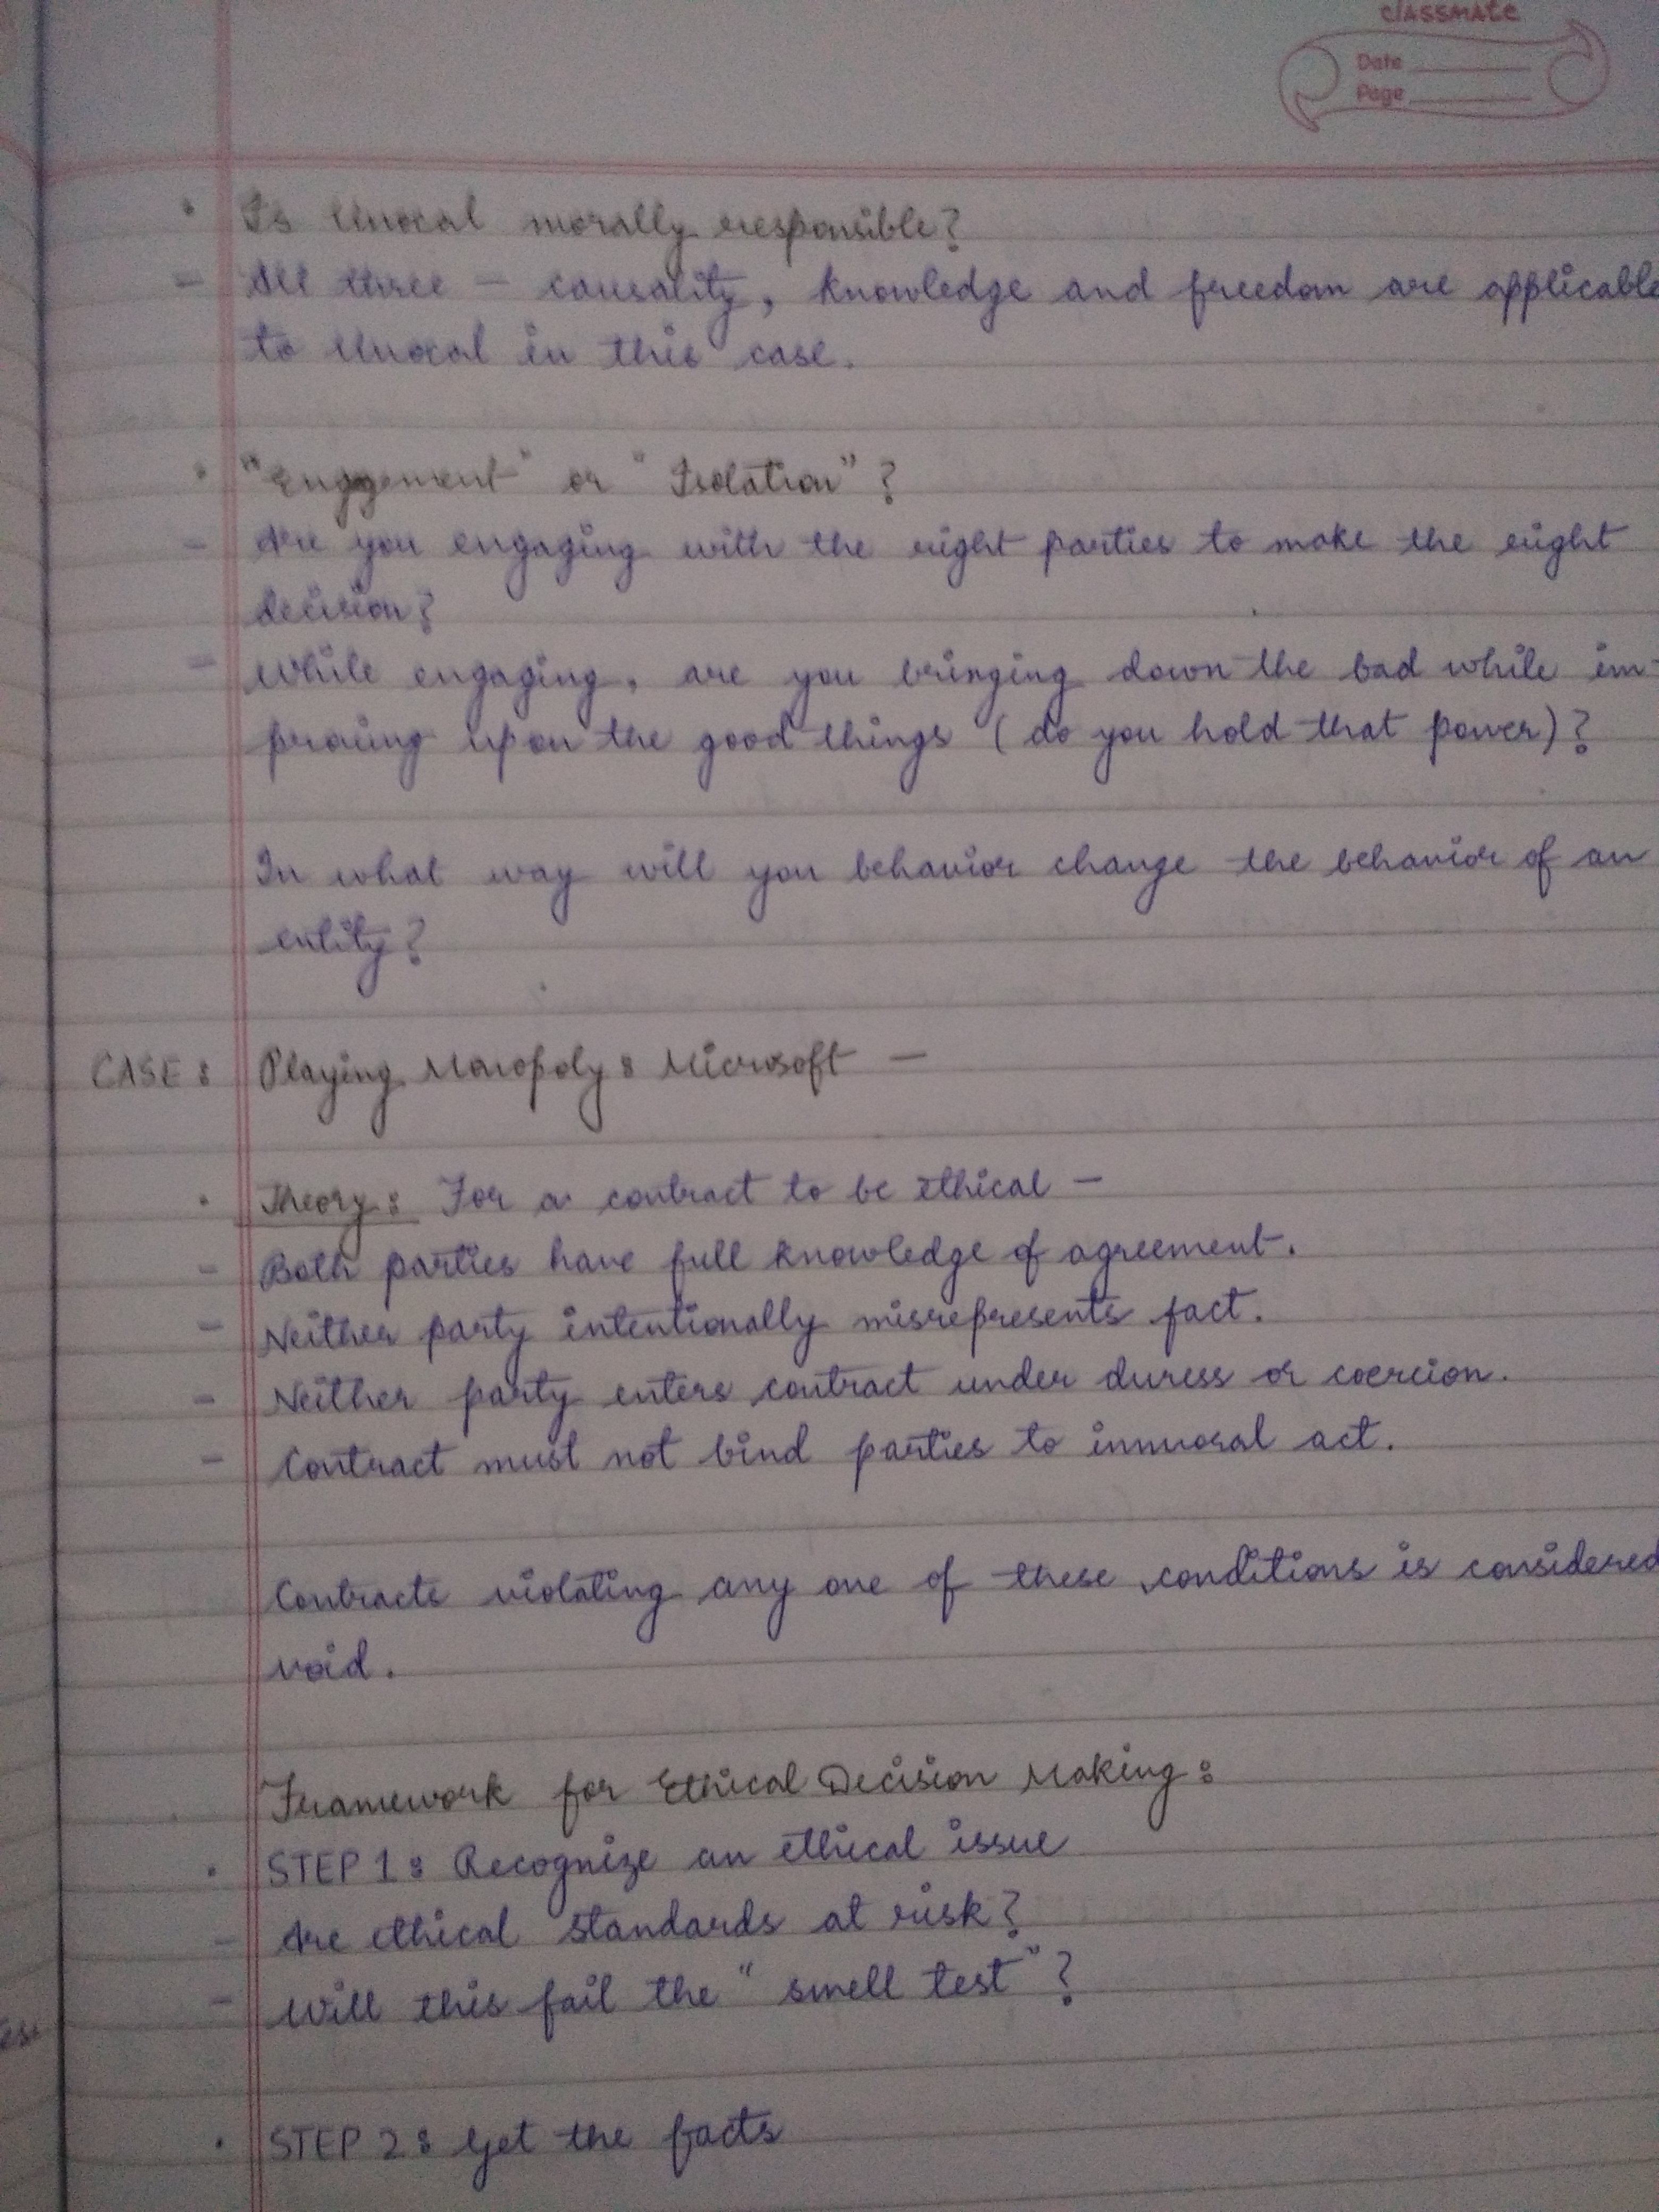 classmate
Date
Page
• Is Unocal morally responsible?
- All three - causality, knowledge and freedom are applicable
to Unocal in this case.
• "Enggement" or "Isolation"?
- Are you engaging with the right parties to make the right
decision?
- While engaging, are you bringing down the bad while im-
proving upon the good things (do you hold that power)?
In what way will you behavior change the behavior of an
entity?
CASE: Playing Monopoly: Microsoft -
• Theory: For a contract to be ethical -
- Both parties have full knowledge of agreement.
- Neither party intentionally misrepresents fact.
- Neither party enters contract under duress or coercion.
- Contract must not bind parties to immoral act.
Contracts violating any one of these conditions is considered
void.
Framework for Ethical Decision Making:
• STEP 1: Recognize an ethical issue
- Are ethical standards at risk?
- Will this fail the "smell test"?
• STEP 2: Get the facts